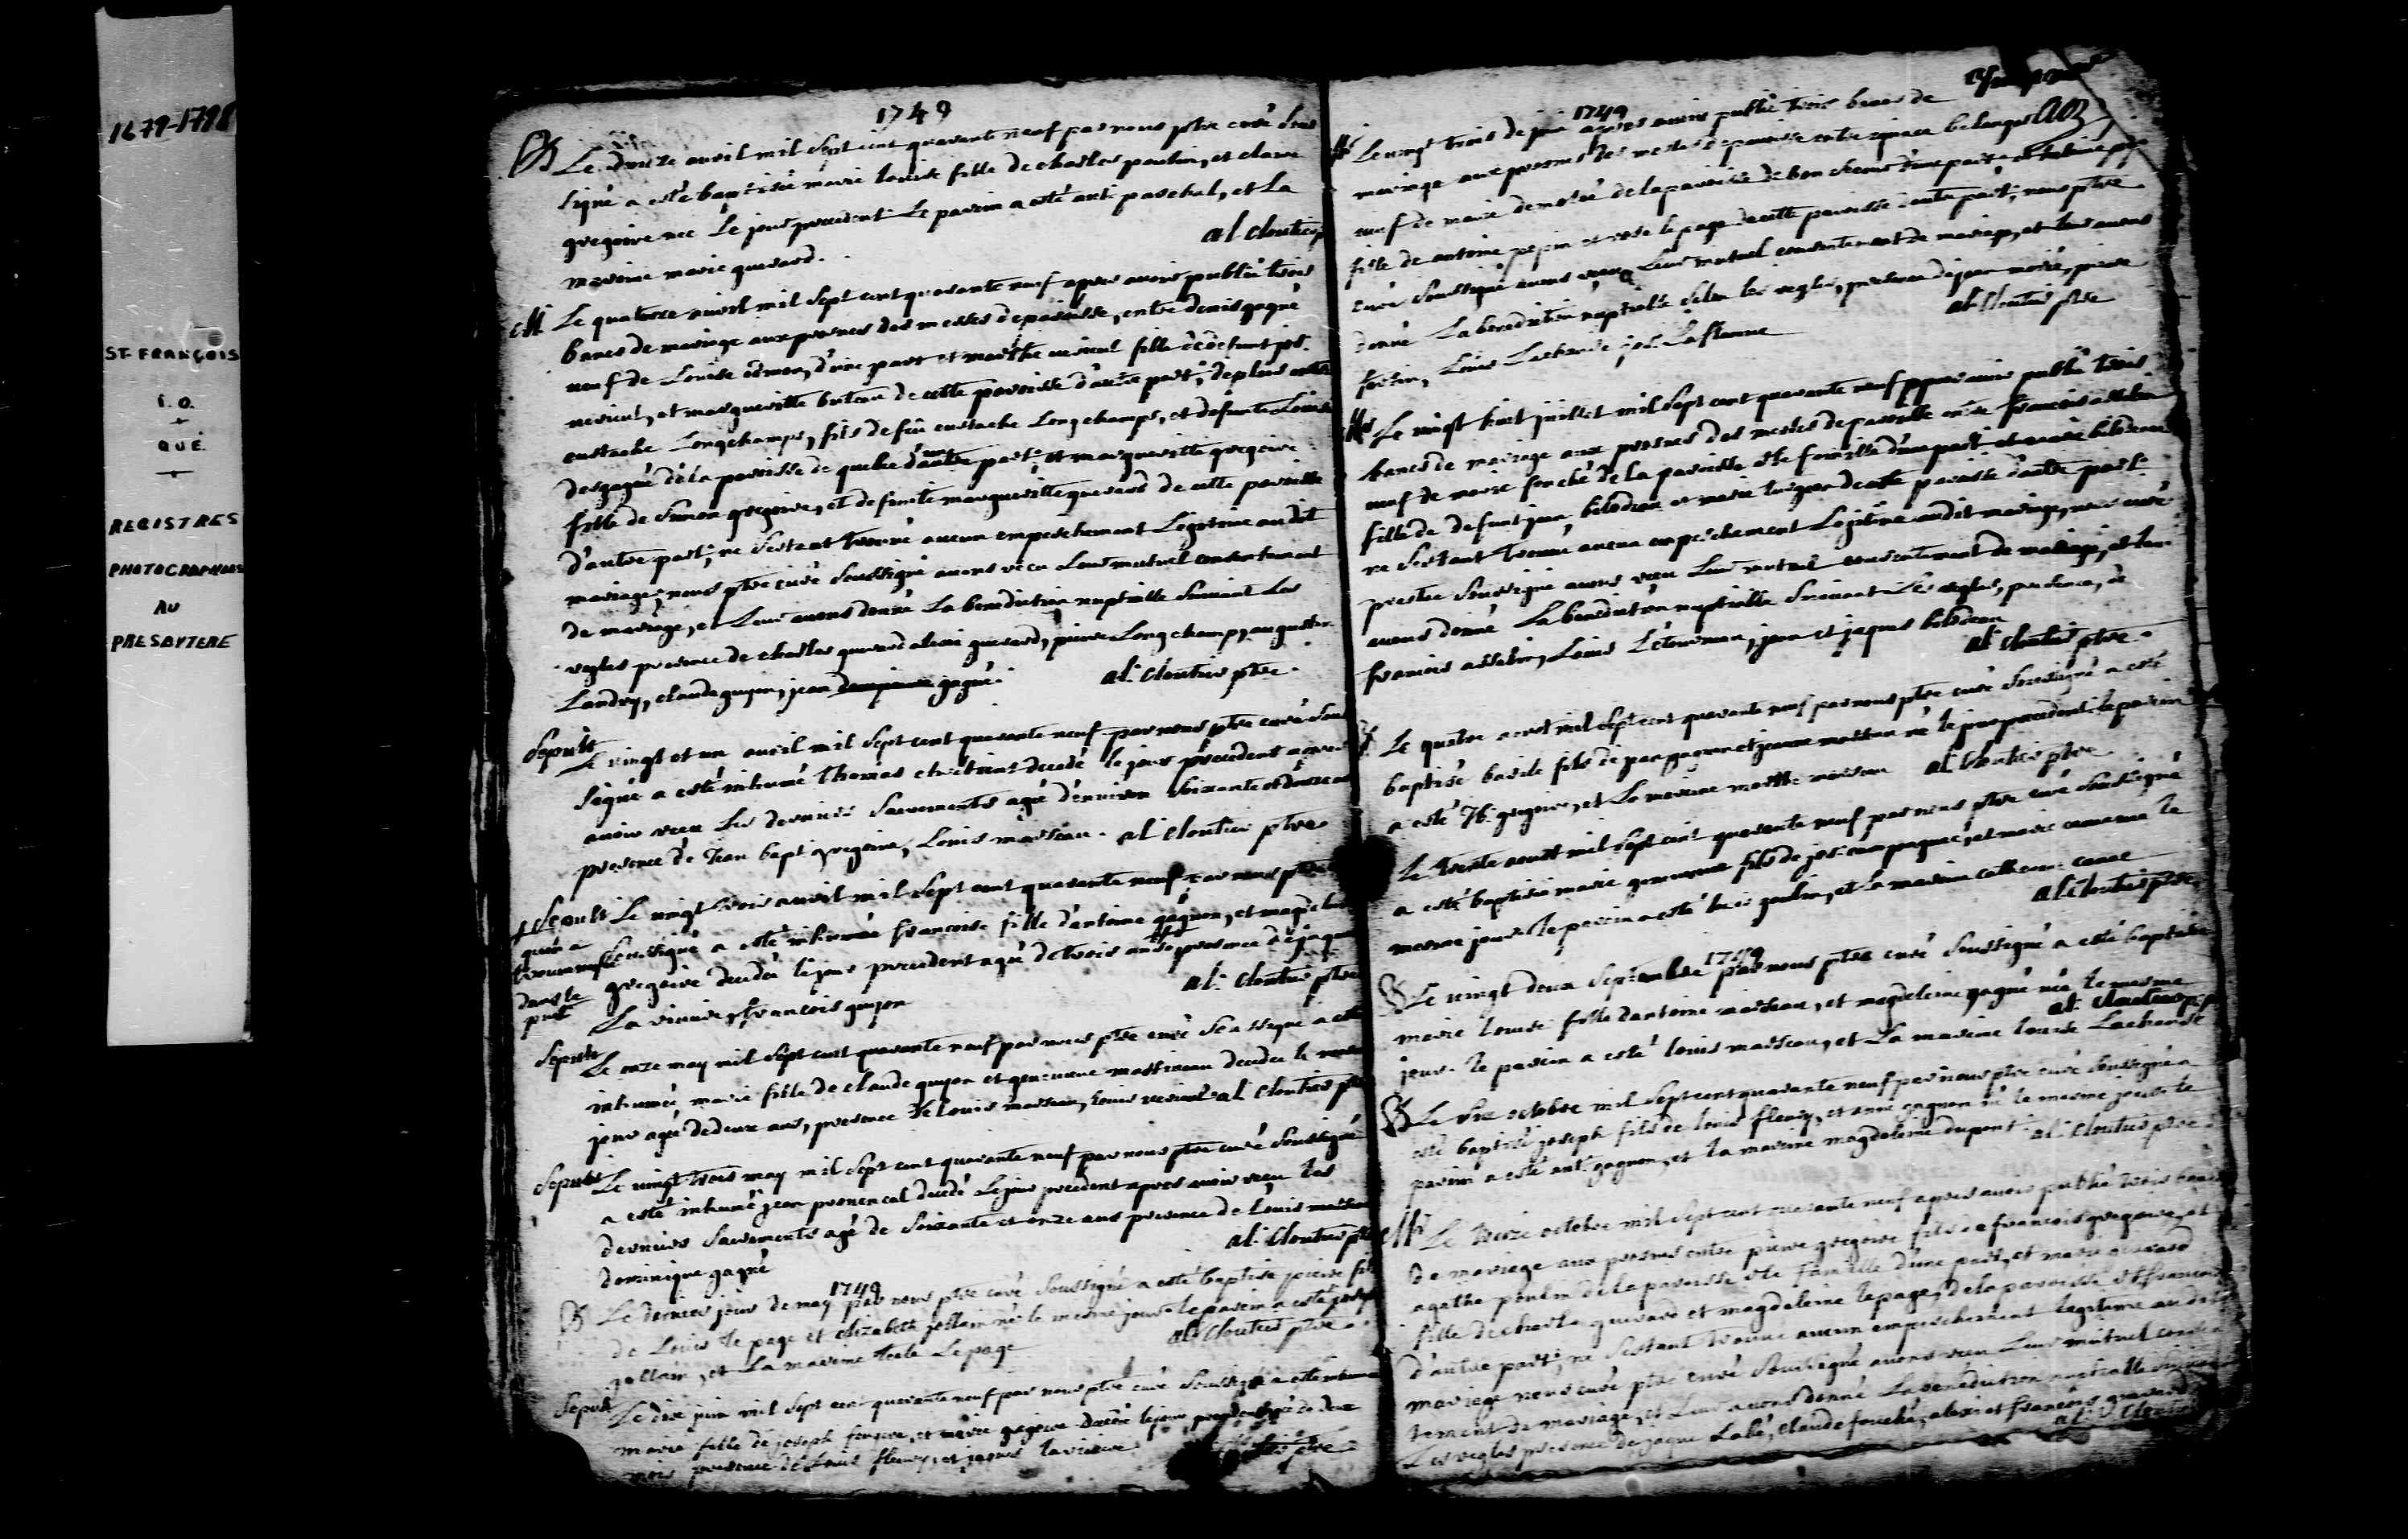 1679-1798
ST-FRANÇOIS
I.O.
QUÉ.
REGISTRES
PHOTOGRAPHIÉS
AU
PRESBYTERE
1749
B Le douze avril mil sept cent quarante neuf par nous ptre curé sous
signé a esté baptisée marie louise fille de charles poulin, et claire
gregoire née le jour precedent le parein a esté ant. paschal, et la
mareine marie guerard.
al. cloutier
M Le quatorze avril mil sept cent quarante neuf apres avoir publié trois
bancs de mariage aux prosnes des messes de paroisse, entre denis gagné
veuf de Louise emon, d'une part et marthe verieul fille de defunt jos.
verieul, et marguerite buteau de cette paroisse d'autre part, de plus entre
eustache Longchamps, fils de feu eustache Longchamps, et defunte Louise
de la paroisse de quebec d'une part et marguerite gregoire
fille de Simon gregoire, et defunte marguerite guerard de cette paroisse
d'autre part, ne sestant trouvé aucun empeschement Legitime audit
mariage, nous ptre curé soussigné avons receu Leur mutuel consentement
de mariage, et Leur avons donné La benediction nuptialle suivant Les
regles presence de charles guerard guerard, pierre Longchamp, augustin
Landry, claude guyon, jean gagné.
al. cloutier ptre.
Sepult
Le vingt et un avril mil sept cent quarante neuf par nous ptre curé sous
signé a esté inhumé Thomas decedé le jour precedent apres
avoir receu Les derniers Sacrements agé d'environ soixante et douze ans
presence de Jean bapt gregoire, Louis marseau. al cloutier ptre
Sepult Le vingt trois avril mil sept cent quarante neuf par nous ptre
soussigné a esté inhumée francoise fille d'antoine gagnon, et magdeleine
gregoire decedée le jour precedent agé de trois ans presence de jaque
La riviere, francois guyon
al. cloutier ptre
dans le
Sepult
Le onze may mil sept cent quarante neuf par nous ptre curé soussigné a esté
inhumée marie fille de claude guyon et decedée le mesme
jour agé de deux ans, presence de Louis marseau, Louis verieul al cloutier ptre
Sepult
Le vingt trois may mil sept cent quarante neuf par nous ptre curé soussigné
a esté inhumé jean provencal decedé Le jour precedent apres avoir receu les
derniers Sacrements agé de soixante et onze ans presence de Louis
dominique gagné
al. cloutier ptre
1749
B Le dernier jour de may par nous ptre curé soussigné a esté baptisé pierre fils
de Louis le page et elizabeth jollain né le mesme jour le parein a esté joseph
jollain, et La mareine Le page
al. cloutier ptre.
Sepult
Le dix juin mil sept cent quarante neuf par nous ptre curé soussigné a esté inhumée
marie fille de joseph et marie gagné decedée le jour precedent agé de deux
mois presence de Louis fleury, et jaques lariviere
1749
M Le vingt trois de juin apres avoir publié trois bancs de
mariage aux prosnes des messes de paroisse entre ignace belanger
veuf de marie de la paroisse de bon secours d'une part et
fille de antoine pepin et le page de cette paroisse d'autre part, nous ptre
curé soussigné avons receu Leur mutuel consentement de mariage, et leur avons
donné La benediction nuptialle selon les regles, presence de jean morin, pierre
fortin, Louis jos. Laflamme
al. cloutier ptre
M Le vingt huit juillet mil sept cent quarante neuf apres avoir publié trois
bancs de mariage aux prosnes des messes de paroisse entre francois asselin
veuf de marie fouché de la paroisse ste famille d'une part et marie bilodeau
fille de defunt jean bilodeau et marie turgeon de cette paroisse d'autre part
ne sestant trouvé aucun empeschement Legitime audit mariage, nous curé
prestre soussigné avons receu Leur mutuel consentement de mariage, et leur
avons donné La benediction nuptialle suivant Les regles, presence, de
francois asselin, Louis Letourneau, jean et jaques bilodeau
al. cloutier ptre.
Le quatre aoust mil sept cent quarante neuf par nous ptre curé soussigné a esté
baptisé basile fils de jean gagnon et né le jour precedent le parein
a esté Jb. gregoire, et La mareine marthe marseau al. cloutier ptre
Le trente aoust mil sept cent quarante neuf par nous ptre curé soussigné
a esté baptisé marie genevieve fille de jos. campagne, et marie le
mesme jour le parein a esté Louis gaulin, et la mareine catherine
al. cloutier ptre
1749
B Le vingt deux septembre par nous ptre curé soussigné a esté baptisée
marie louise fille d'antoine marseau, et magdeleine gagné née le mesme
jour. le parein a esté Louis marseau, et La mareine louise
al. cloutier ptre
B Le six octobre mil sept cent quarante neuf par nous ptre curé soussigné a
esté baptisé joseph fils de louis fleury, et anne gagnon né le mesme jour. le
parein a esté ant. gagnon, et la mareine magdeleine dupont al. cloutier ptre
M Le treize octobre mil sept cent quarante neuf apres avoir publié trois bancs
de mariage aux prosnes entre pierre gregoire fils de francois gregoire, et
agathe poulin de la paroisse ste famille d'une part, et marie guerard
fille de charles guerard et magdeleine le page, de la paroisse st francois
d'autre part, ne sestant trouvé aucun empeschement legitime audit
mariage nous curé ptre curé soussigné avons receu Leur mutuel consen
tement de mariage, et Leur avons donné La benediction nuptialle suivant
Les regles presence de jaque Labé, claude fouché, alexis et francois guerard
al. cloutier